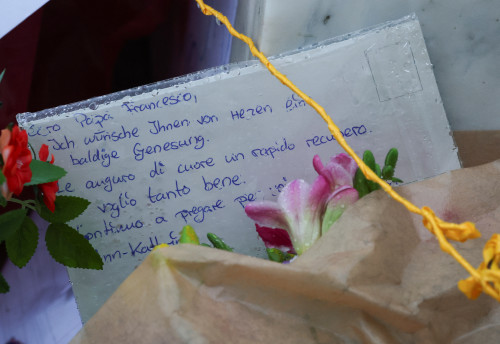 Papa Francesco,
Ich wünsche Ihnen von Herzen eine
baldige Genesung.
auguro di cuore un rapido recupero.
voglio tanto bene.
a pregare per